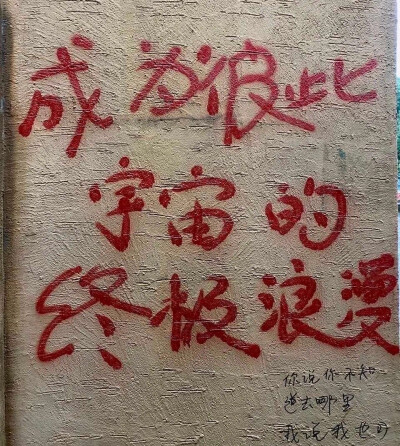 成为彼此
宇宙的
终极浪漫
你说你不知
道去哪里
我说我也